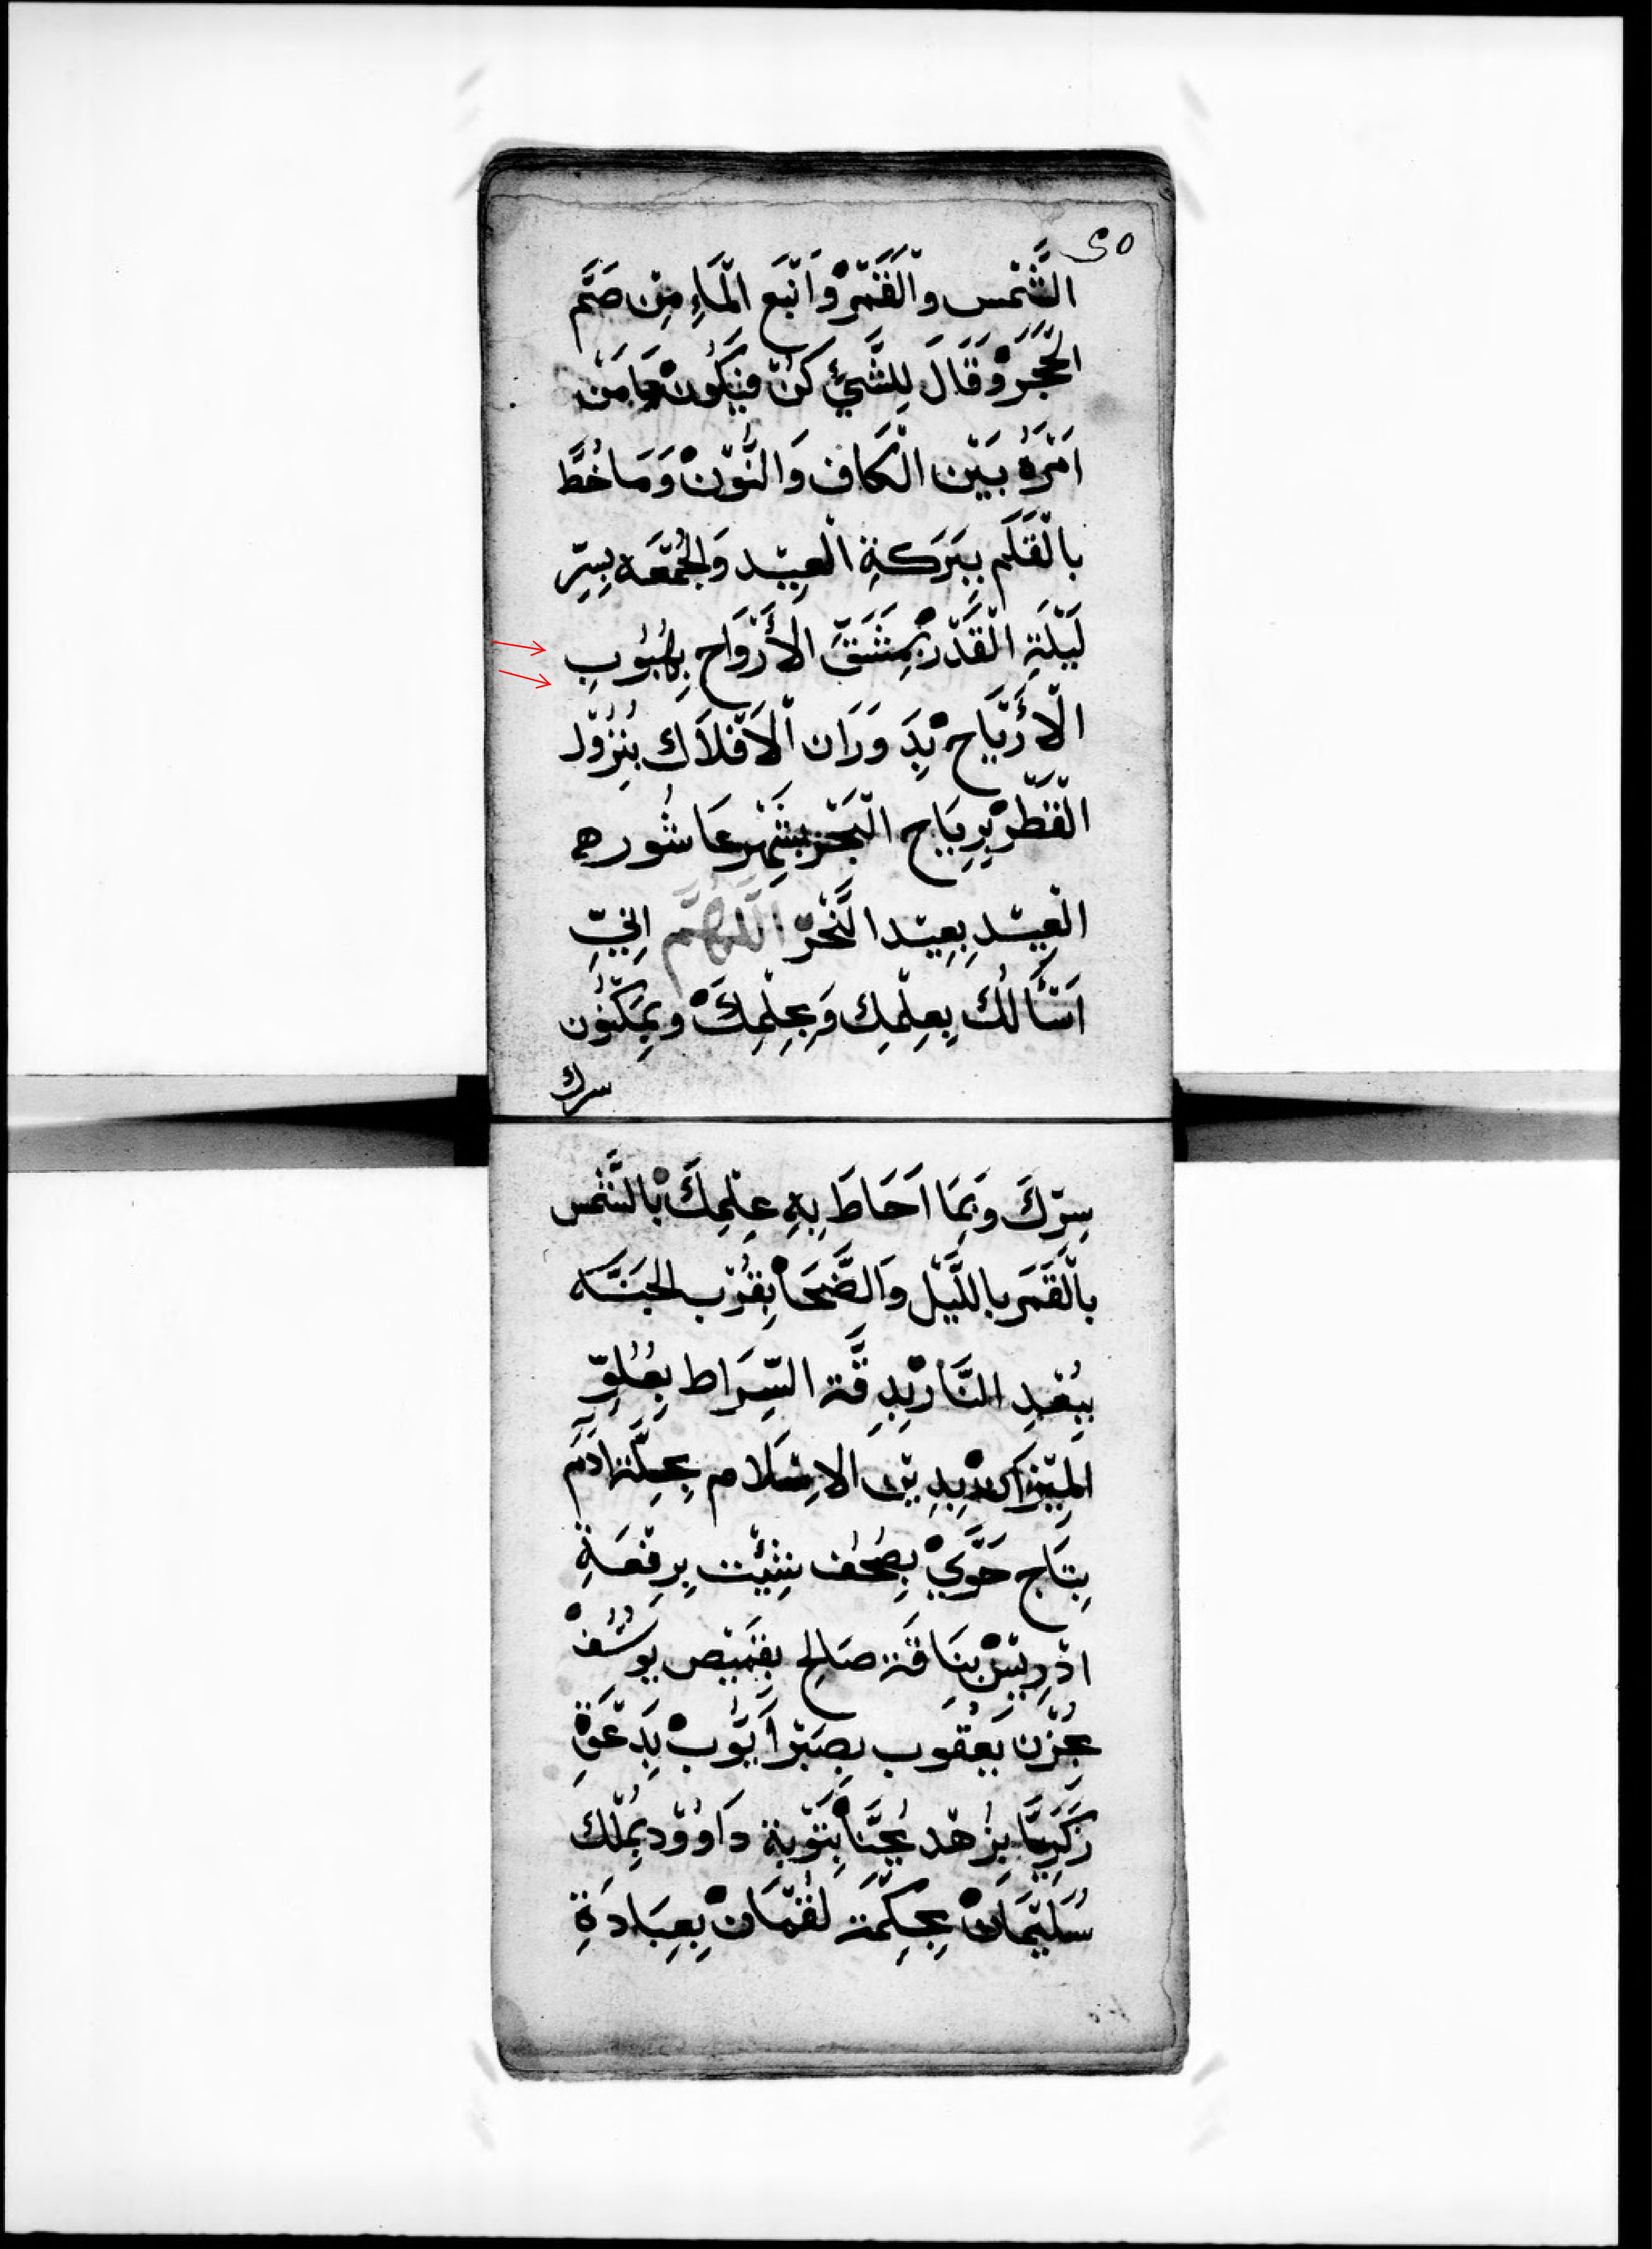 ٥٥
الشَّمْس وَالْقَمَرْ وَاَنْبَع الْمَاءِ مِنْ صَمِّ
الحَجَرْ وَقَالَ لِلشَّيْئِ كُنْ فَيَكُونْ يَا مَن
اَمْرُهُ بَيْن الْكَاف وَالنُّوْنْ وَمَا خُطَّ
بالْقَلَم بِبَرَكةِ الْعِيْد وَالجُمْعَه بِسِرِّ
لَيْلَةِ الْقَدْرْ بِمِشَقِّ الأَرْوَاح بِهُبُوْبِ
الْأَرْيَاح بِدَوَرَان الْاَفْلَاك بِنُزُوْل
الْقَطْرْ بِرِيَاح الْبَحْر بِشَهْر عَاشُوره
الْعِيْدِ بِعِيْد النَّحْرْ اللَّهُمَّ اِنِيِّ
اَسْأَلُكَ بِعِلْمِك وَبِحِلْمِكَ وبِمَكْنُون
سرك
سِرّكَ وَبِمَا اَحَاطَ بِهِ عِلْمِكَ بالشَّمْس
بالْقَمَر باللَّيْل وَالضَّحَا بِقُرْب الجَنَّه
بِبُعْدِ النَّارْ بِدِقَّة السِّرَاط بِعُلوِّ
المِيْزَانْ بِدِيْن الاِسْلَام بِحِلَّة اَدَم
بِتَاج حَوَّيْ بِصُحُف شِيْئت بِرِفْعَةِ
ادْرِيْسْ بِنَاقَة صَالِح بِقَمِيْص يُوسُفْ
بِحُزْن يَعْقُوب بِصَبْر اَيُّوبْ بِدَعْوَةِ
زَكَرِيَّا بِزُهْد يُحَيَّا بِتَوْبَة دَاوُوْد بِمُلْكِ
سُلَيْمَانْ بِحِكْمَة لُقْمَانْ بِعِبَادَةِ